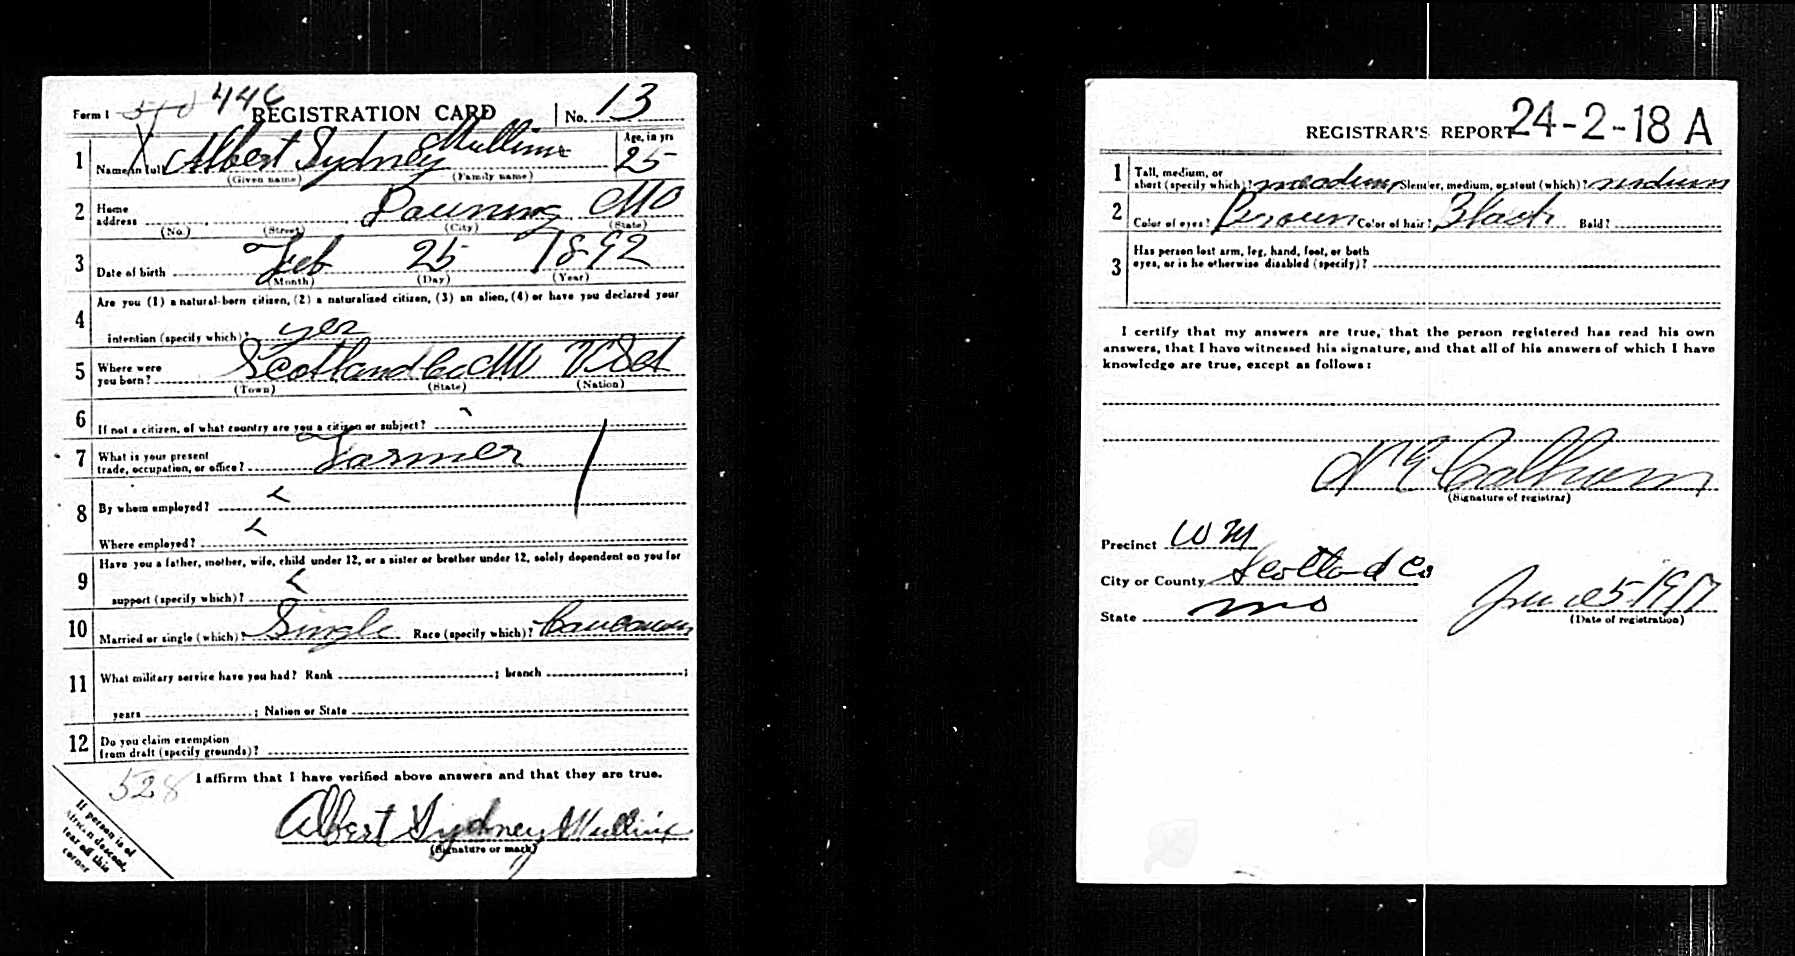 Form 1 540 446 REGISTRATION CARD No. 13
1 Name in full Albert Sydney Mullinix Age, in yrs 25
(Given name) (Family name)
2 Home address Downing Mo
(No.) (Street) (City) (State)
3 Date of birth Feb 25 1892
(Month) (Day) (Year)
4 Are you (1) a natural-born citizen, (2) a naturalized citizen, (3) an alien, (4) or have you declared your
intention (specify which)? yes
5 Where were you born? Scotland Co Mo U S A
(Town) (State) (Nation)
6 If not a citizen, of what country are you a citizen or subject?
7 What is your present trade, occupation, or office? Farmer
8 By whom employed?
Where employed?
9 Have you a father, mother, wife, child under 12, or a sister or brother under 12, solely dependent on you for
support (specify which)?
10 Married or single (which)? Single Race (specify which)? Caucasian
11 What military service have you had? Rank ; branch ;
years ; Nation or State
12 Do you claim exemption
from draft (specify grounds)?
528 I affirm that I have verified above answers and that they are true.
Albert Sydney Mullinix
(Signature or mark)
If person is of
African descent,
tear off this
corner
REGISTRAR'S REPORT 24-2-18 A
1 Tall, medium, or
short (specify which)? medium Slender, medium, or stout (which)? medium
2 Color of eyes? Brown Color of hair? Black Bald?
3 Has person lost arm, leg, hand, foot, or both
eyes, or is he otherwise disabled (specify)?
I certify that my answers are true, that the person registered has read his own
answers, that I have witnessed his signature, and that all of his answers of which I have
knowledge are true, except as follows:
Calhoun
(Signature of registrar)
Precinct W M
City or County Scotland Co
State Mo
June 5-1917
(Date of registration)